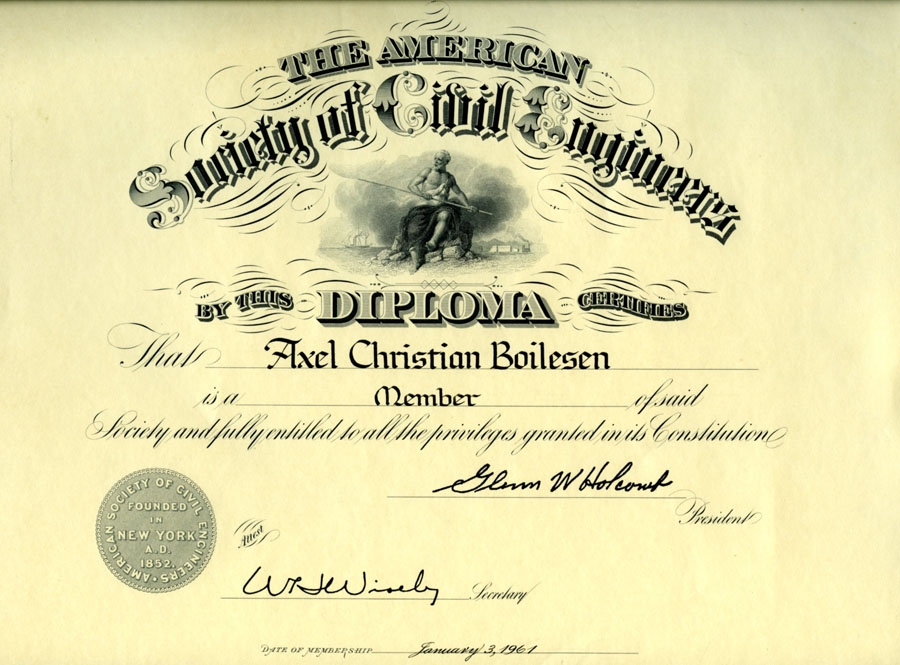 THE AMERICAN
Society of Civil Engineers
BY THIS DIPLOMA CERTIFIES
That Axel Christian Boilesen
is a Member of said
Society and fully entitled to all the privileges granted in its Constitution
Glenn W Holcomb
President
AMERICAN SOCIETY OF CIVIL ENGINEERS
FOUNDED
IN
NEW YORK
A.D.
1852.
Attest
W H Wisely Secretary
DATE OF MEMBERSHIP January 3, 1961